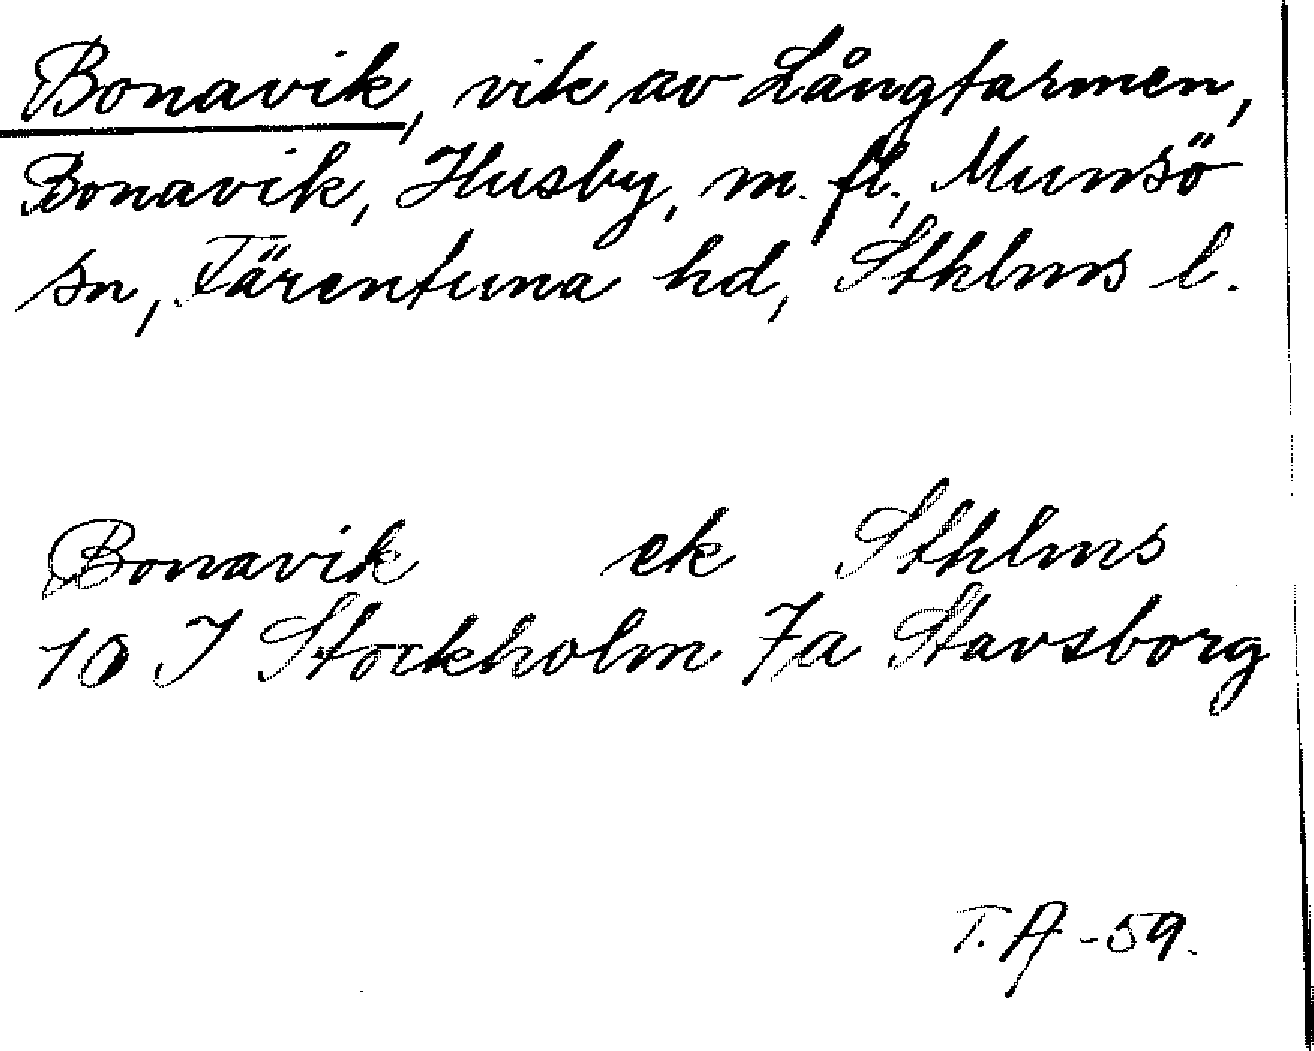 Bonavik, vik av Långtarmen,
Bonavik, Husby, m. fl., Munsö
sn, Färentuna hd, Sthlms l.
Bonavik ek Sthlms
10 I Stockholm 7a Stavsborg
T. A -59.